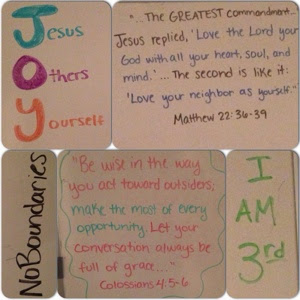 Jesus
Others
Yourself
"...The GREATEST commandment...
Jesus replied, 'Love the Lord your
God with all your heart, soul, and
mind.' ... The second is like it:
'Love your neighbor as yourself.'"
Matthew 22:36-39
No Boundaries
"Be wise in the way
you act toward outsiders;
make the most of every
opportunity. Let your
conversation always be
full of grace..."
Colossians 4:5-6
I
AM
3rd